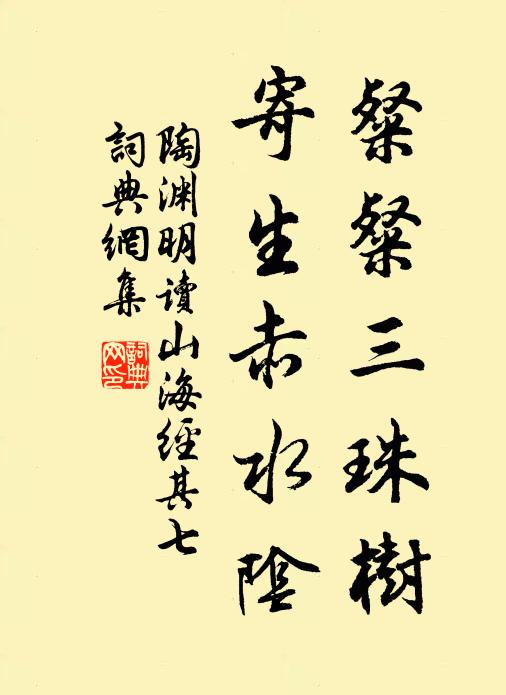 粲粲三珠樹
寄生赤水陰
陶渊明读山海經其七
詞典網集
詞典
网印